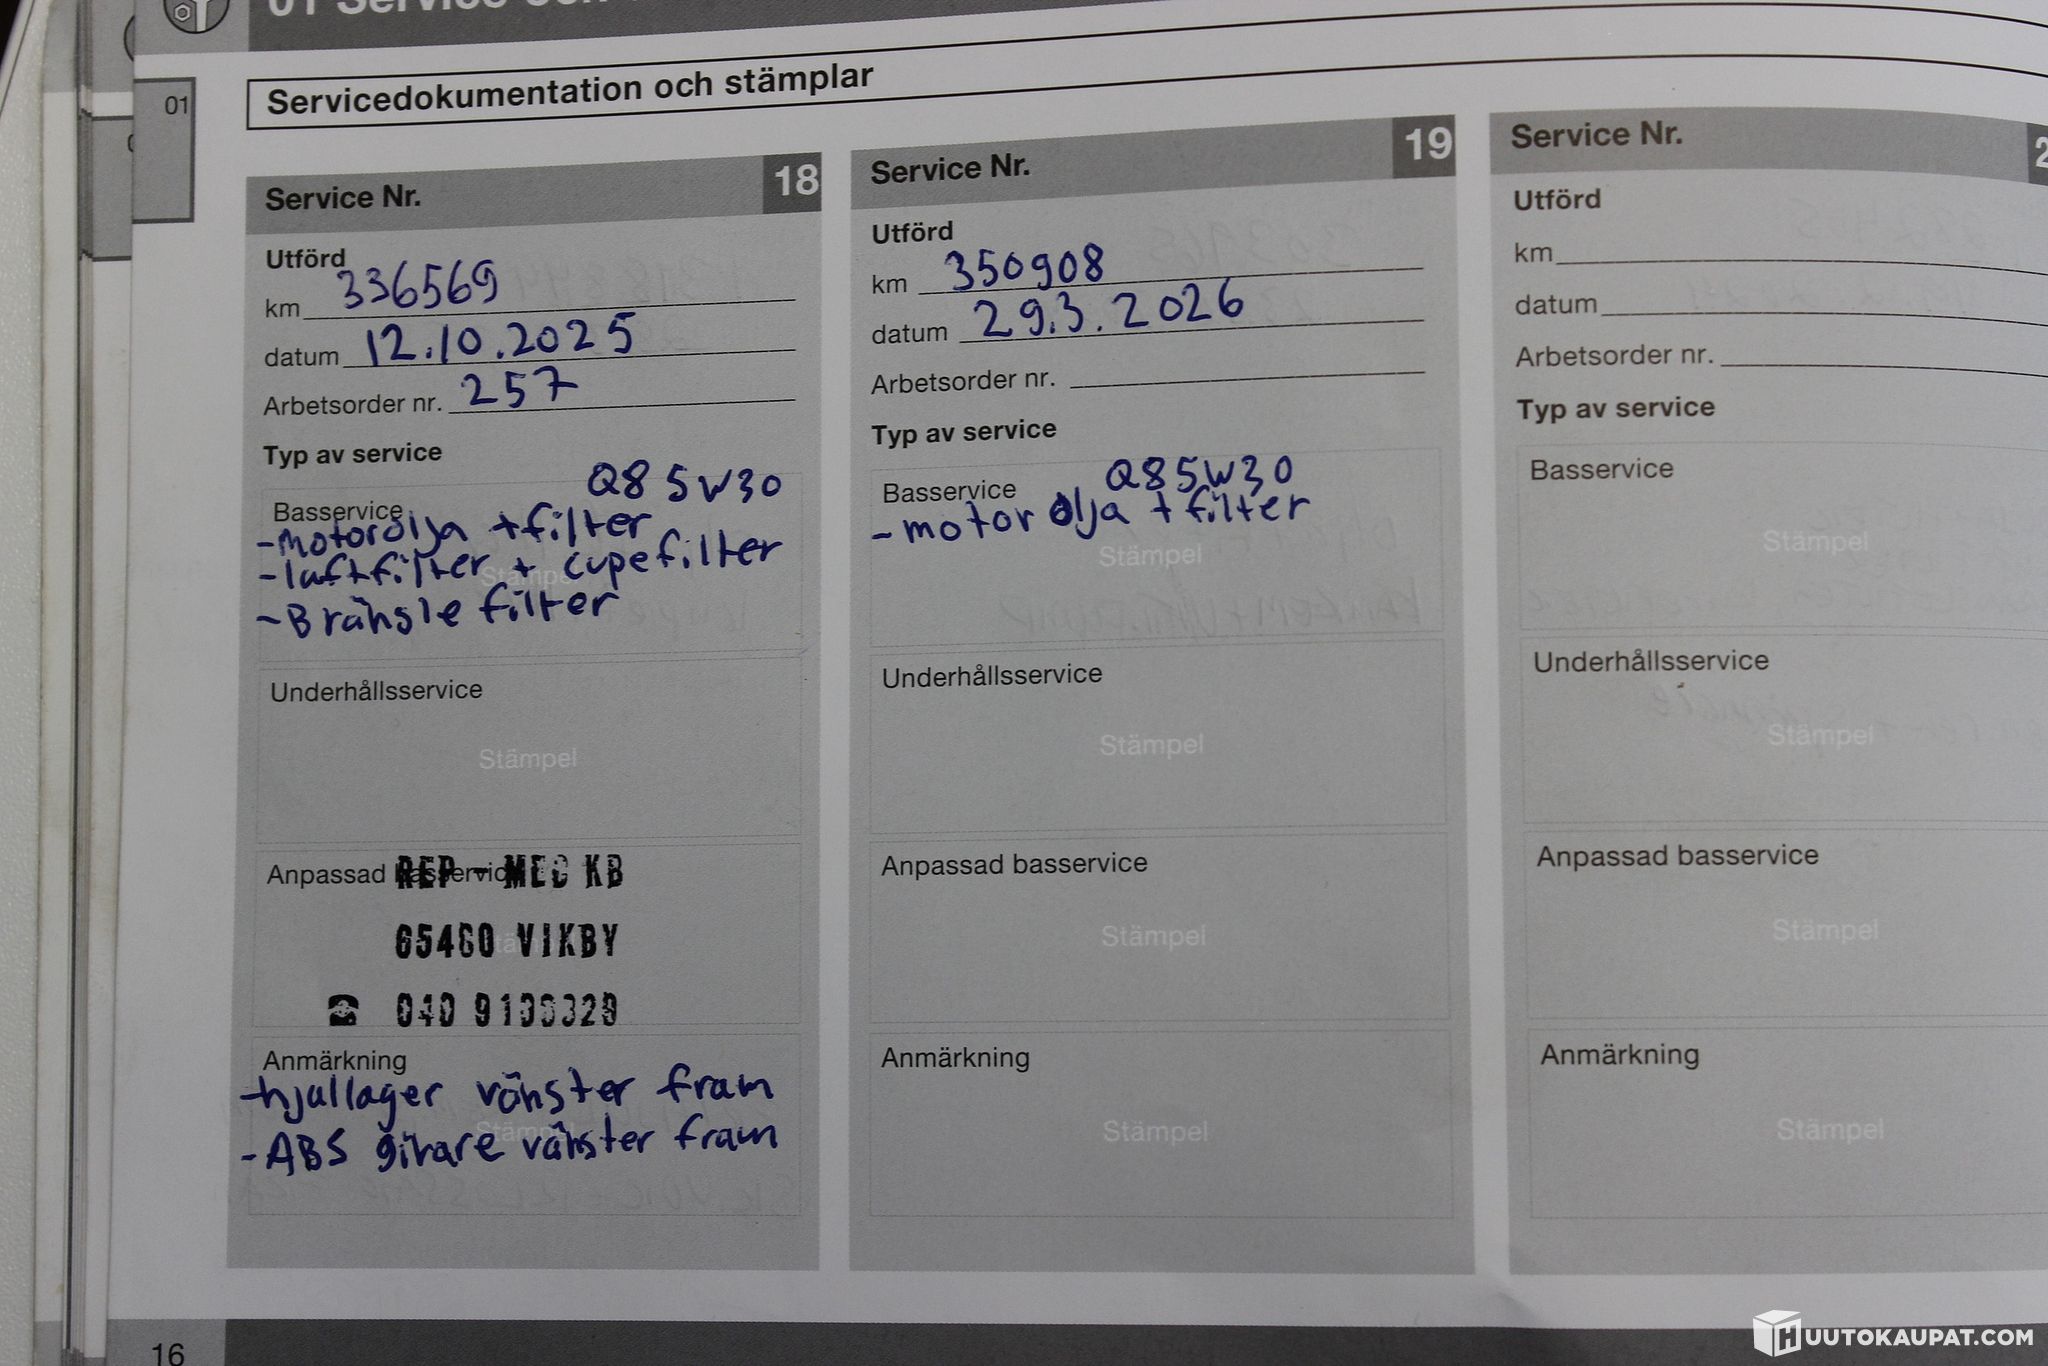 01 Service och
01
Servicedokumentation och stämplar
Service Nr. 18
Utförd
km 336569
datum 12.10.2025
Arbetsorder nr. 257
Typ av service
Q8 5W30
Basservice
- motorolja + filter
- luftfilter + cupefilter
- Bränsle filter
Underhållsservice
Stämpel
Anpassad basservice
REP - MEC KB
65460 VIKBY
Anmärkning
- hjullager vänster fram
- ABS givare vänster fram
Service Nr. 19
Utförd
km 350908
datum 29.3.2026
Arbetsorder nr.
Typ av service
Q8 5W30
Basservice
- motor olja + filter
Stämpel
Underhållsservice
Stämpel
Anpassad basservice
Stämpel
Anmärkning
Stämpel
Service Nr. 2
Utförd
km
datum
Arbetsorder nr.
Typ av service
Basservice
Stämpel
Underhållsservice
Stämpel
Anpassad basservice
Stämpel
Anmärkning
Stämpel
16
HUUTOKAUPAT.COM